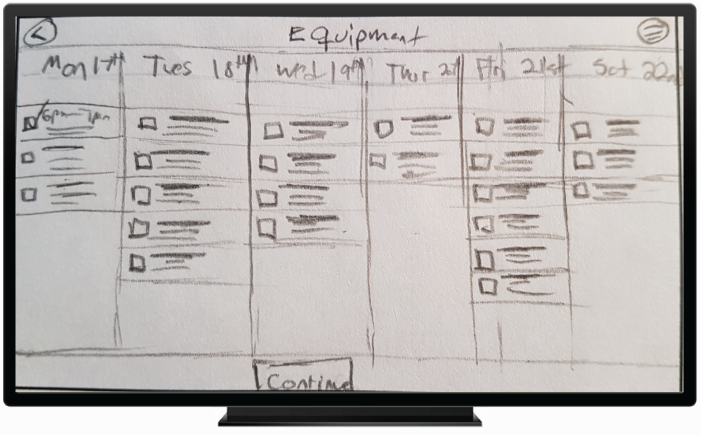 Equipment
Mon 17th Tues 18th Wed 19th Thur Fri 21st Sat 22nd
6pm - 7pm
Continue